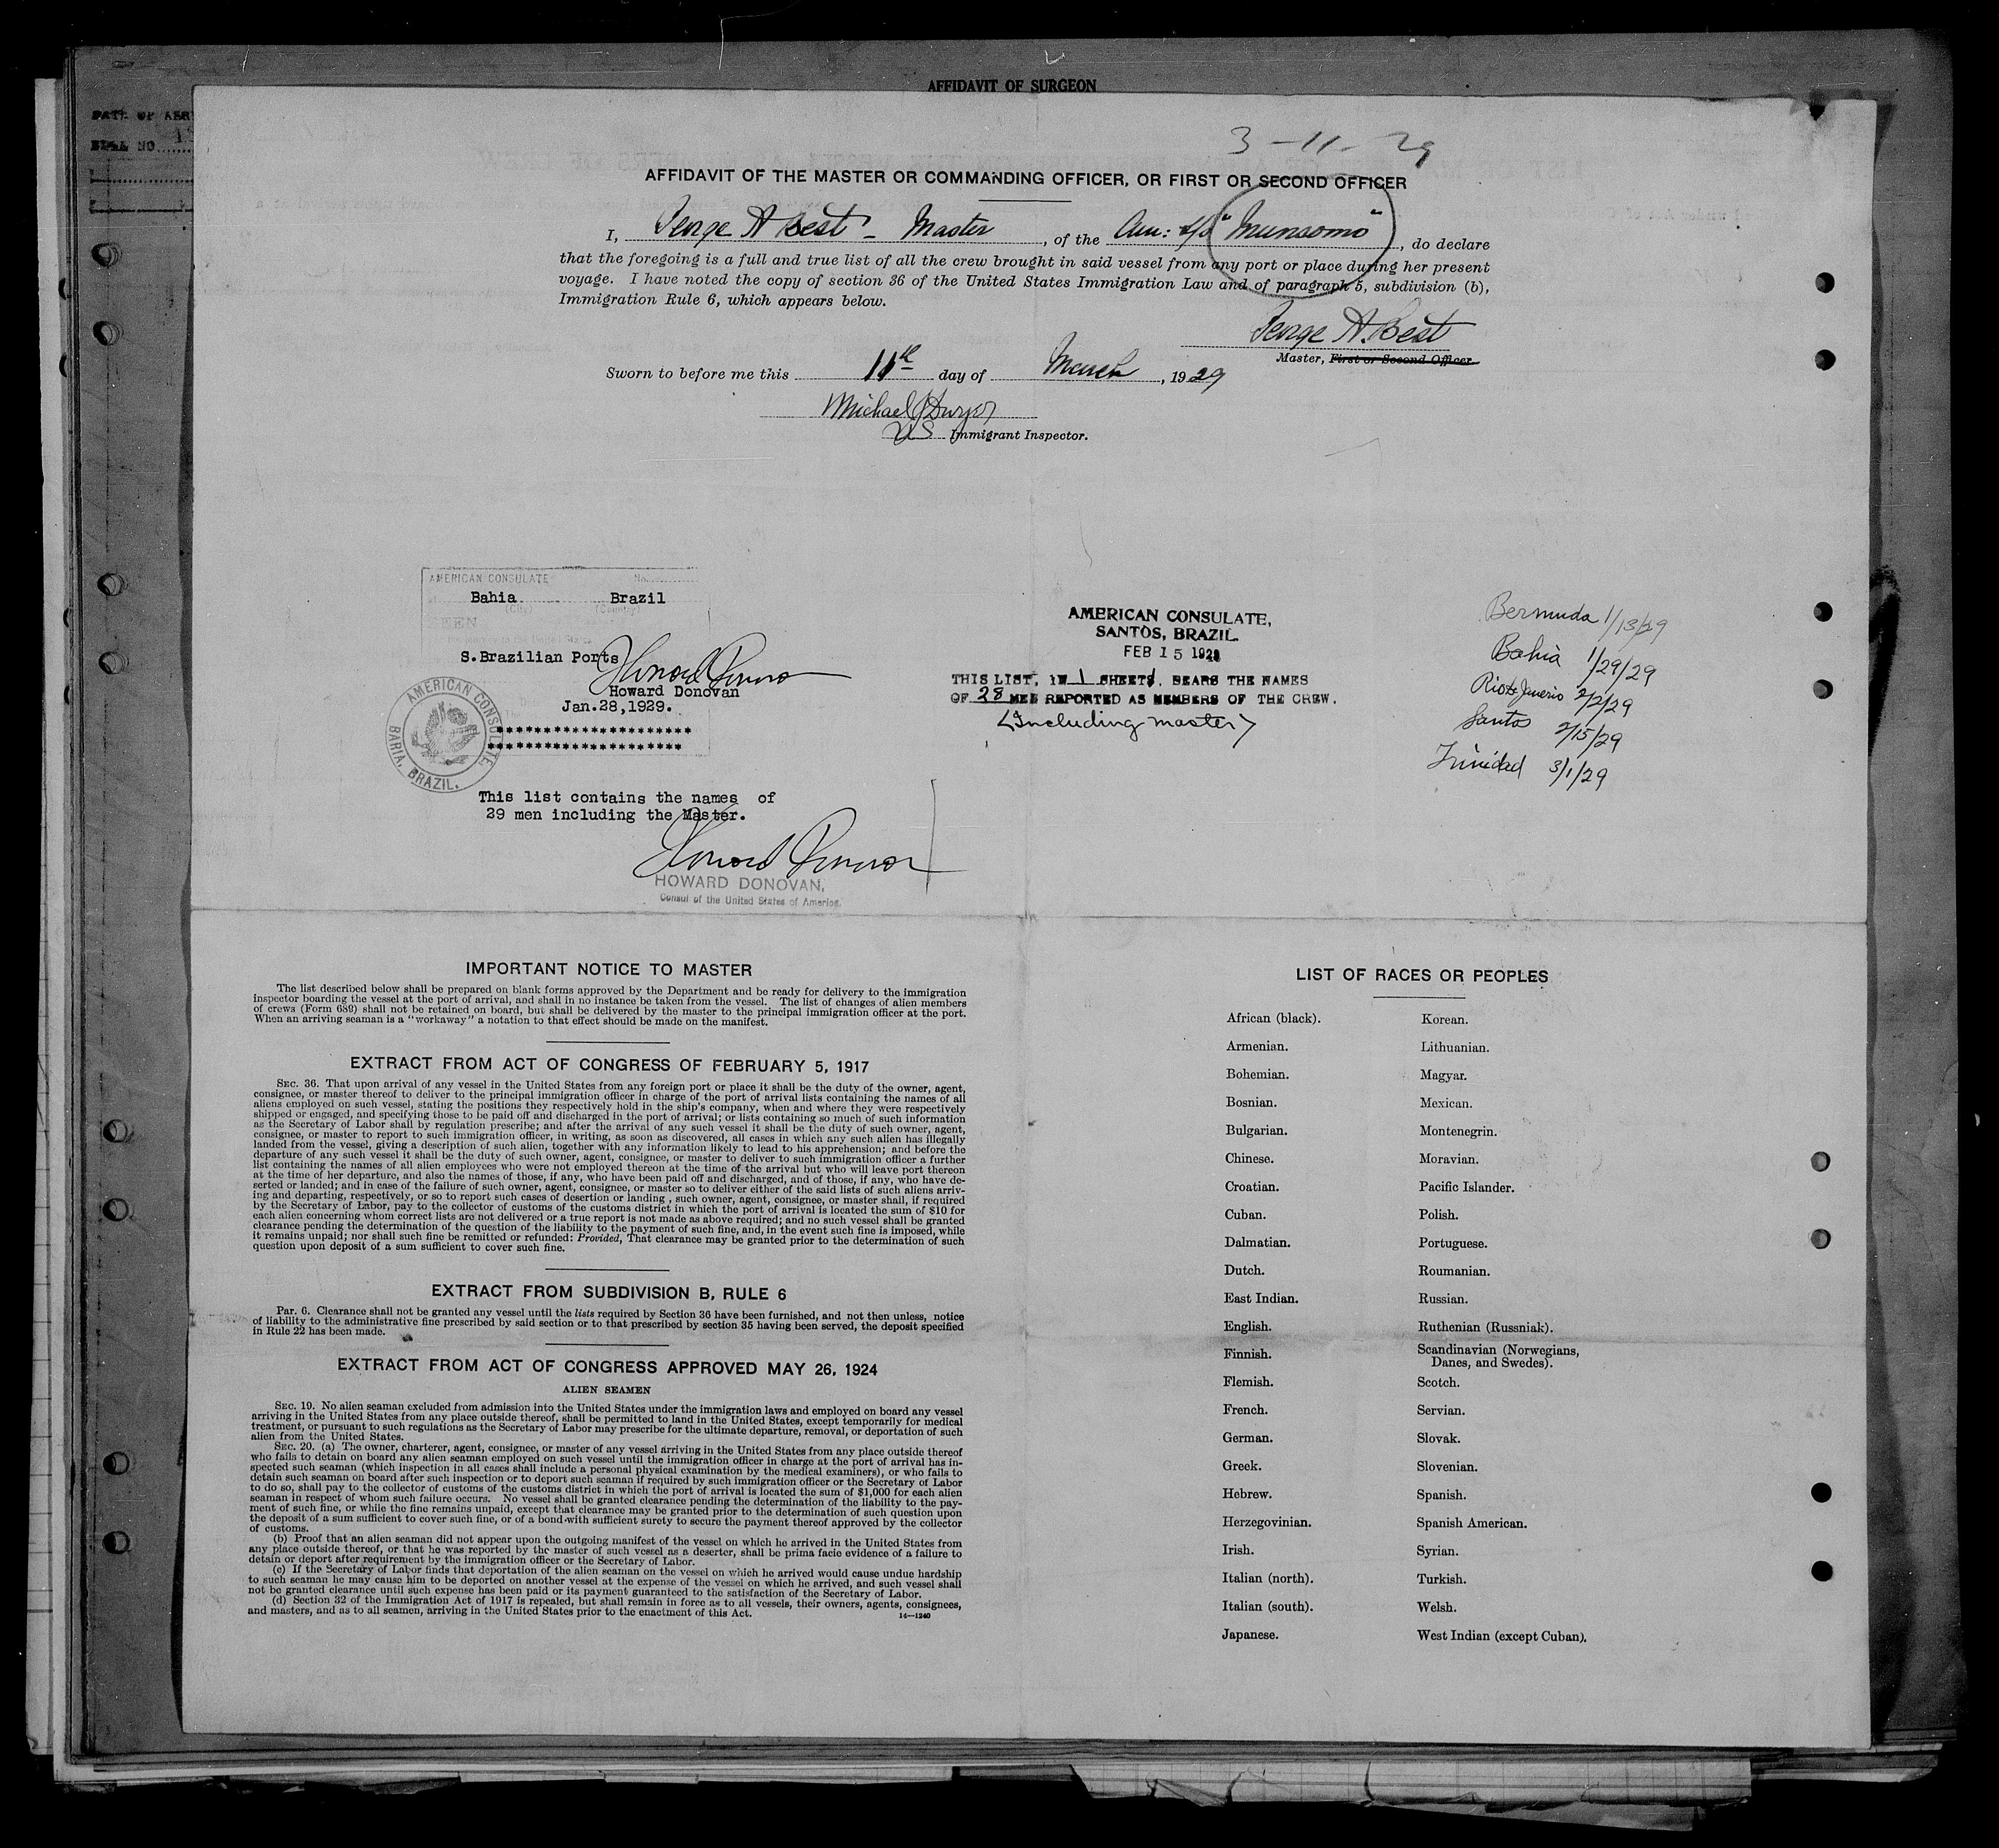 AFFIDAVIT OF SURGEON
BILL NO
3-11-29
AFFIDAVIT OF THE MASTER OR COMMANDING OFFICER, OR FIRST OR SECOND OFFICER
I, George A Best - Master, of the Am: S/S "Munsomo", do declare
that the foregoing is a full and true list of all the crew brought in said vessel from any port or place during her present
voyage. I have noted the copy of section 36 of the United States Immigration Law and of paragraph 5, subdivision (b),
Immigration Rule 6, which appears below.
George A. Best
Master, First or Second Officer
Sworn to before me this 11th day of March, 1929
Michael J Dwyer
US Immigrant Inspector.
AMERICAN CONSULATE No.
Bahia Brazil
(City) (Country)
SEEN
S.Brazilian Ports
Howard Donovan
Jan.28,1929.
********************
********************
AMERICAN CONSULATE, BAHIA, BRAZIL.
This list contains the names of
29 men including the Master.
HOWARD DONOVAN,
Consul of the United States of America.
AMERICAN CONSULATE,
SANTOS, BRAZIL.
FEB 15 1929
THIS LIST, IN 1 SHEET, BEARS THE NAMES
OF 28 MEN REPORTED AS MEMBERS OF THE CREW.
<Including master>
Bermuda 1/13/29
Bahia 1/29/29
Rio de Janerio 2/2/29
Santos 2/15/29
Trinidad 3/1/29
IMPORTANT NOTICE TO MASTER
The list described below shall be prepared on blank forms approved by the Department and be ready for delivery to the immigration
inspector boarding the vessel at the port of arrival, and shall in no instance be taken from the vessel. The list of changes of alien members
of crews (Form 689) shall not be retained on board, but shall be delivered by the master to the principal immigration officer at the port.
When an arriving seaman is a "workaway" a notation to that effect should be made on the manifest.
EXTRACT FROM ACT OF CONGRESS OF FEBRUARY 5, 1917
SEC. 36. That upon arrival of any vessel in the United States from any foreign port or place it shall be the duty of the owner, agent,
consignee, or master thereof to deliver to the principal immigration officer in charge of the port of arrival lists containing the names of all
aliens employed on such vessel, stating the positions they respectively hold in the ship's company, when and where they were respectively
shipped or engaged, and specifying those to be paid off and discharged in the port of arrival; or lists containing so much of such information
as the Secretary of Labor shall by regulation prescribe; and after the arrival of any such vessel it shall be the duty of such owner, agent,
consignee, or master to report to such immigration officer, in writing, as soon as discovered, all cases in which any such alien has illegally
landed from the vessel, giving a description of such alien, together with any information likely to lead to his apprehension; and before the
departure of any such vessel it shall be the duty of such owner, agent, consignee, or master to deliver to such immigration officer a further
list containing the names of all alien employees who were not employed thereon at the time of the arrival but who will leave port thereon
at the time of her departure, and also the names of those, if any, who have been paid off and discharged, and of those, if any, who have de-
serted or landed; and in case of the failure of such owner, agent, consignee, or master so to deliver either of the said lists of such aliens arriv-
ing and departing, respectively, or so to report such cases of desertion or landing , such owner, agent, consignee, or master shall, if required
by the Secretary of Labor, pay to the collector of customs of the customs district in which the port of arrival is located the sum of $10 for
each alien concerning whom correct lists are not delivered or a true report is not made as above required; and no such vessel shall be granted
clearance pending the determination of the question of the liability to the payment of such fine, and, in the event such fine is imposed, while
it remains unpaid; nor shall such fine be remitted or refunded: Provided, That clearance may be granted prior to the determination of such
question upon deposit of a sum sufficient to cover such fine.
EXTRACT FROM SUBDIVISION B, RULE 6
Par. 6. Clearance shall not be granted any vessel until the lists required by Section 36 have been furnished, and not then unless, notice
of liability to the administrative fine prescribed by said section or to that prescribed by section 35 having been served, the deposit specified
in Rule 22 has been made.
EXTRACT FROM ACT OF CONGRESS APPROVED MAY 26, 1924
ALIEN SEAMEN
SEC. 19. No alien seaman excluded from admission into the United States under the immigration laws and employed on board any vessel
arriving in the United States from any place outside thereof, shall be permitted to land in the United States, except temporarily for medical
treatment, or pursuant to such regulations as the Secretary of Labor may prescribe for the ultimate departure, removal, or deportation of such
alien from the United States.
SEC. 20. (a) The owner, charterer, agent, consignee, or master of any vessel arriving in the United States from any place outside thereof
who fails to detain on board any alien seaman employed on such vessel until the immigration officer in charge at the port of arrival has in-
spected such seaman (which inspection in all cases shall include a personal physical examination by the medical examiners), or who fails to
detain such seaman on board after such inspection or to deport such seaman if required by such immigration officer or the Secretary of Labor
to do so, shall pay to the collector of customs of the customs district in which the port of arrival is located the sum of $1,000 for each alien
seaman in respect of whom such failure occurs. No vessel shall be granted clearance pending the determination of the liability to the pay-
ment of such fine, or while the fine remains unpaid, except that clearance may be granted prior to the determination of such question upon
the deposit of a sum sufficient to cover such fine, or of a bond with sufficient surety to secure the payment thereof approved by the collector
of customs.
(b) Proof that an alien seaman did not appear upon the outgoing manifest of the vessel on which he arrived in the United States from
any place outside thereof, or that he was reported by the master of such vessel as a deserter, shall be prima facie evidence of a failure to
detain or deport after requirement by the immigration officer or the Secretary of Labor.
(c) If the Secretary of Labor finds that deportation of the alien seaman on the vessel on which he arrived would cause undue hardship
to such seaman he may cause him to be deported on another vessel at the expense of the vessel on which he arrived, and such vessel shall
not be granted clearance until such expense has been paid or its payment guaranteed to the satisfaction of the Secretary of Labor.
(d) Section 32 of the Immigration Act of 1917 is repealed, but shall remain in force as to all vessels, their owners, agents, consignees,
and masters, and as to all seamen, arriving in the United States prior to the enactment of this Act.
14—1240
LIST OF RACES OR PEOPLES
African (black). Korean.
Armenian. Lithuanian.
Bohemian. Magyar.
Bosnian. Mexican.
Bulgarian. Montenegrin.
Chinese. Moravian.
Croatian. Pacific Islander.
Cuban. Polish.
Dalmatian. Portuguese.
Dutch. Roumanian.
East Indian. Russian.
English. Ruthenian (Russniak).
Finnish. Scandinavian (Norwegians,
Danes, and Swedes).
Flemish. Scotch.
French. Servian.
German. Slovak.
Greek. Slovenian.
Hebrew. Spanish.
Herzegovinian. Spanish American.
Irish. Syrian.
Italian (north). Turkish.
Italian (south). Welsh.
Japanese. West Indian (except Cuban).